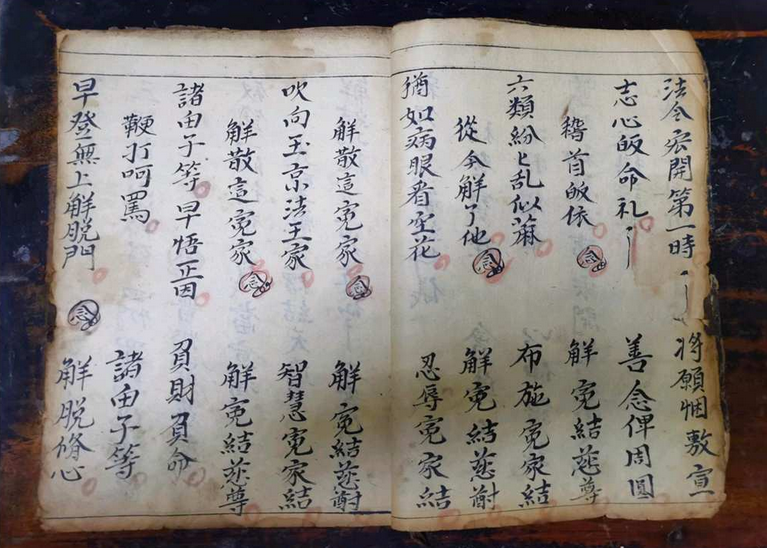 法令宏開第一時 将願悃敷宣
志心皈命礼 善念俾周圓
稽首皈依 念 解寃結慈尊
六類紛〻乱似蔴 布施寃家結
從今解了他 念 解寃結慈
猶如病眼看空花 忍辱寃家結
解散這寃家 念 解寃結慈
吹向玉京法王家 智慧寃家結
解散這寃家 念 解寃結慈尊
諸由子等早悟正因 負財負命
鞭打呵罵 諸由子等
早登無上解脱門 念 解脱脩心